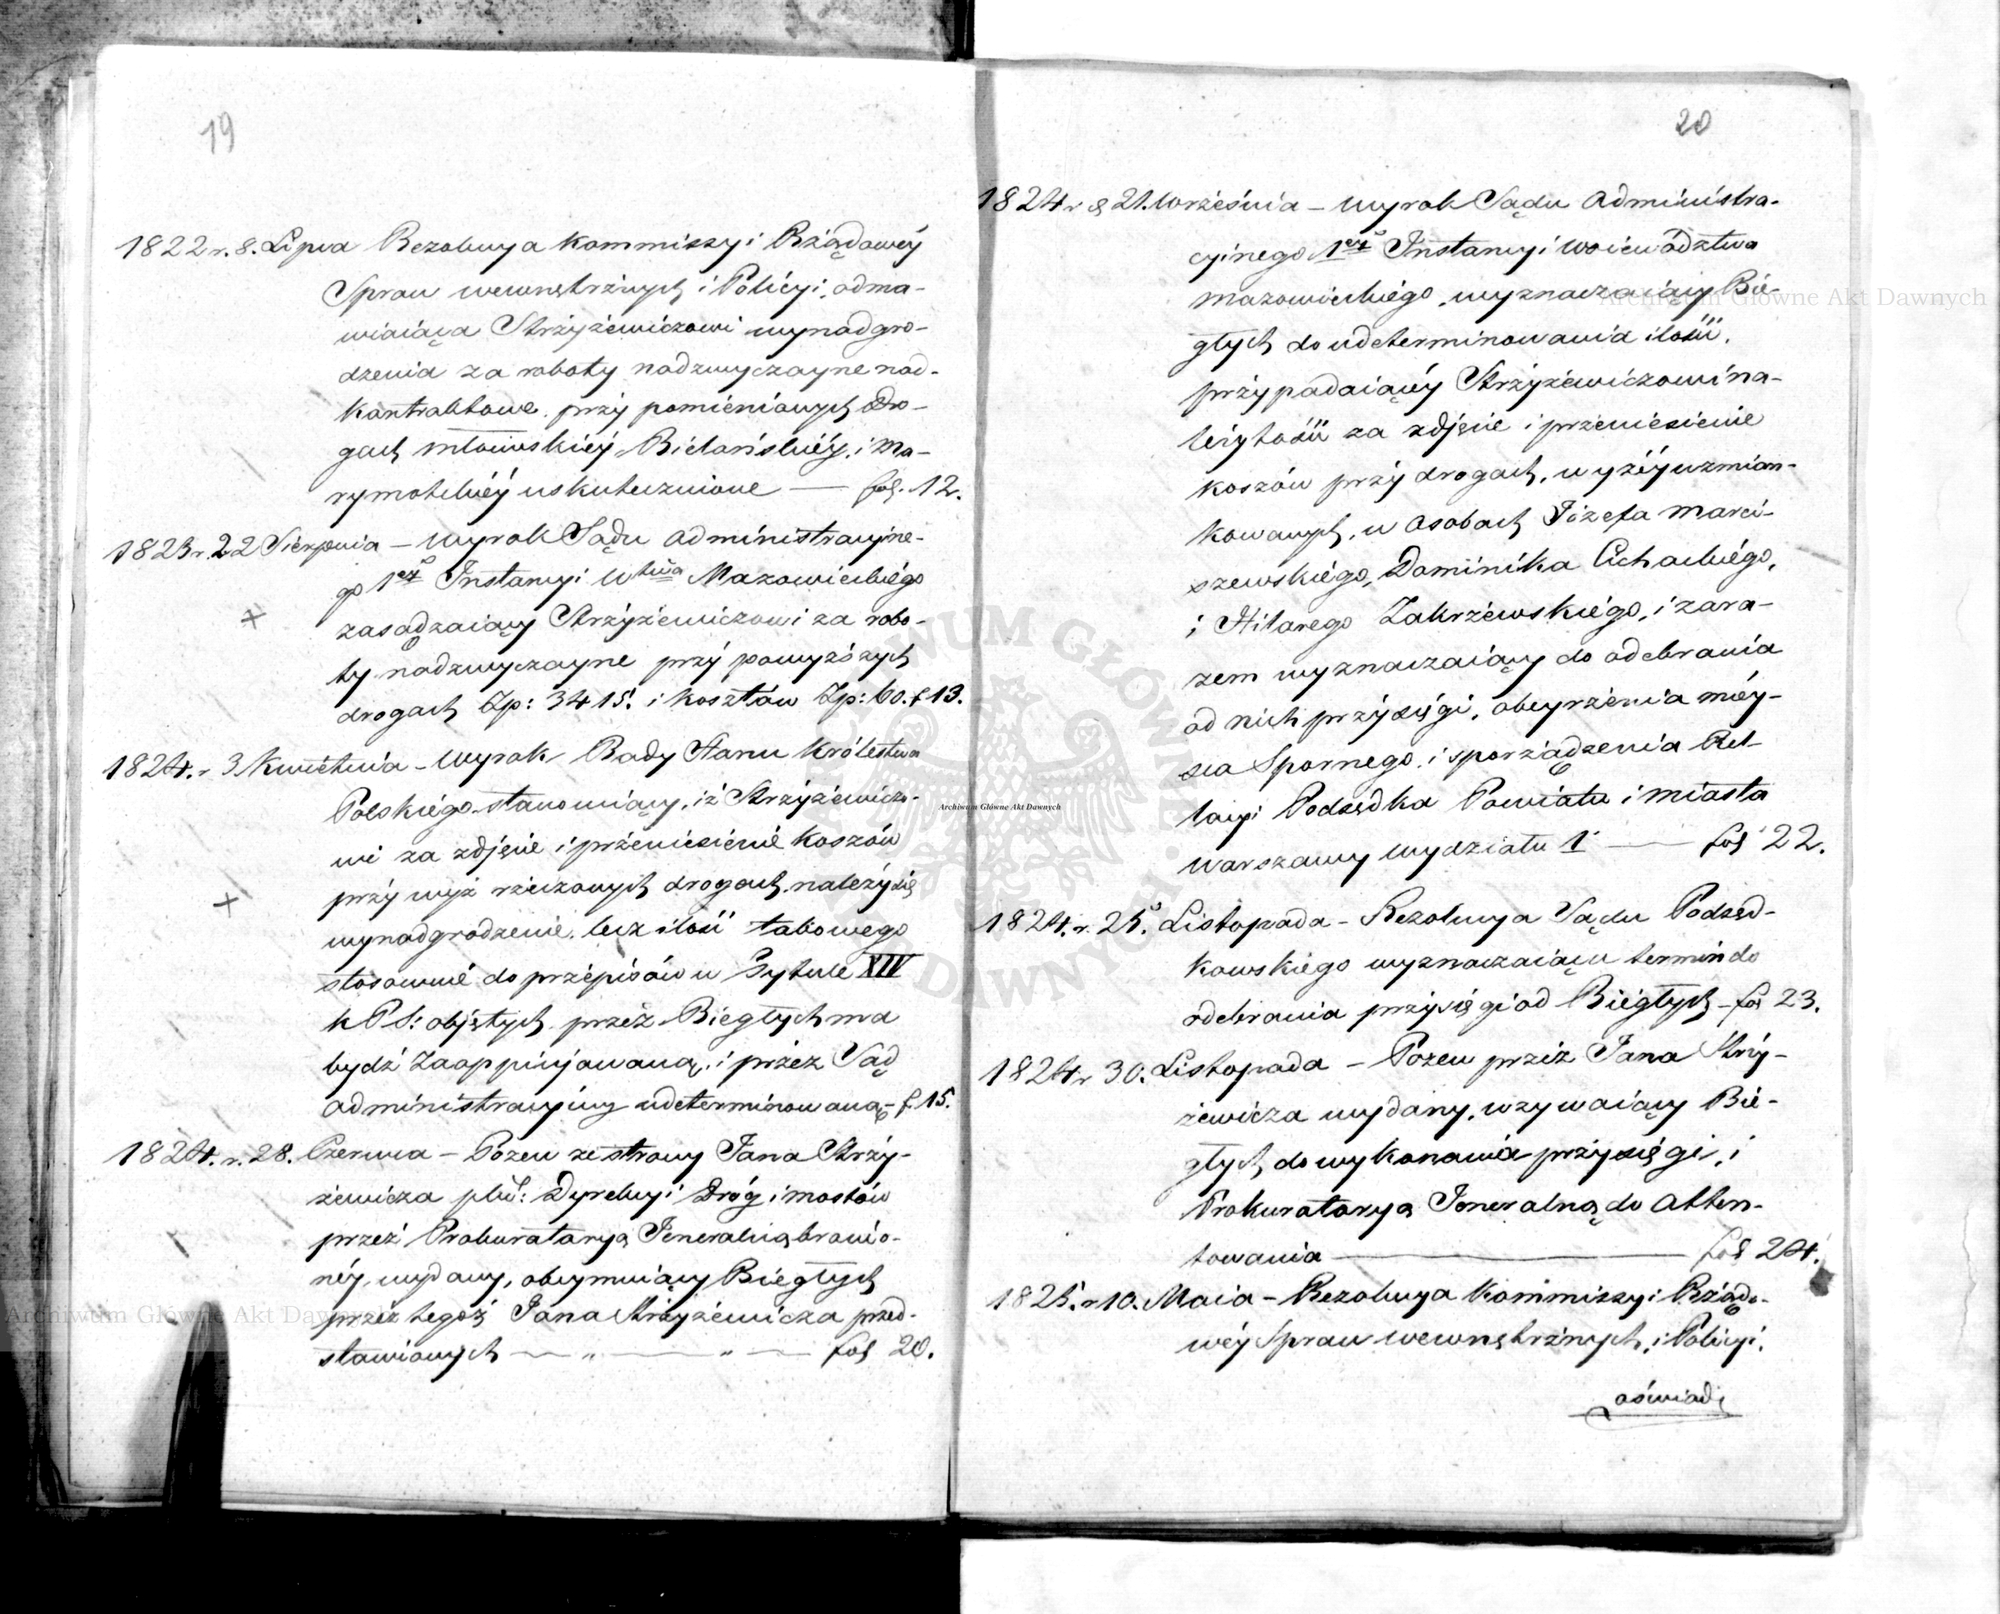 19
1822 r. 8. Lipca Rezolucya Kommissyi Rządowéy
Spraw wewnętrznych i Policyi, odma-
wiaiąca Strzyżewiczowi wynadgro-
dzenia za roboty nadzwyczayne nad-
kontraktowe przy pomienionych Dro-
gach Młowskiéy, Bielańskiéy, i Ma-
rymotskiéy uskutecznione — fol. 12.
1823 r. 22 Sierpnia – Wyrok Sądu Administracyjne-
go 1ey Instancyi Wtwa Mazowieckiégo
zasądzaiący Strzyżewiczowi za robo-
ty nadzwyczayne przy powyższych
drogach Zp: 3415. i kosztów Zp: 60. f 13.
1824. r 3 Kwietnia – Wyrok Rady Stanu Królestwa
Polskiégo stanowiący, iż Strzyżewiczo-
wi za zdjęcie i przeniesienie koszów
przy wyż rzeczonych drogach należy się
wynadgrodzenie, lecz ilość takowego
stosownie do przepisów w Tytule XIV
K P S: objętych przez Biegłych ma
bydź Zaoppiniowaną, i przez Sąd
Administracyiny udeterminowaną – f. 15.
1824. r. 28. Czerwca – Pozew ze strony Jana Strzy-
żewicza plko: Dyrekcyi Dróg i mostów
przez Prokuratoryą Jeneralną bronio-
néy, wydany, obeymuiący Biegłych
przez tegoż Jana Strzyżewicza przed-
stawionych — „ — „ — fol 20.
20
1824 r 21. Września – Wyrok Sądu Administra-
cyinego 1ey Instancyi Woiewództwa
Mazowieckiégo, wyznaczaiący Bie-
głych do udeterminowania ilości,
przypadaiącéy Strzyżewiczowi na-
leżytości za zdjęcie i przeniesienie
koszów przy drogach, wyżéy wzmian-
kowanych, w osobach Józefa Marci-
szewskiégo, Dominika Cichockiégo,
i Hilarego Zakrzewskiégo, i zara-
zem wyznaczaiący do odebrania
od nich przysięgi, obeyrzenia miey-
sca Spornego, i sporządzenia Rel-
lacyi Podsędka Powiatu i miasta
Warszawy wydziału 1 — fol 22.
1824. r. 25. Listopada – Rezolucya Sądu Podsęd-
kowskiégo wyznaczaiąca termin do
odebrania przysięgi od Biegłych – fol 23.
1824 r 30. Listopada – Pozew przez Jana Strzy-
żewicza wydany, wzywaiący Bie-
głych do wykonania przysięgi, i
Prokuratoryą Jeneralną do Atten-
towania — fol 24.
1825. r 10. Maia – Rezolucya Kommissyi Rządo-
wéy Spraw wewnętrznych, i Policyi,
oświad-
Archiwum Główne Akt Dawnych
Archiwum Główne Akt Dawnych
Archiwum Główne Akt Dawnych
ARCHIWUM GŁÓWNE AKT DAWNYCH